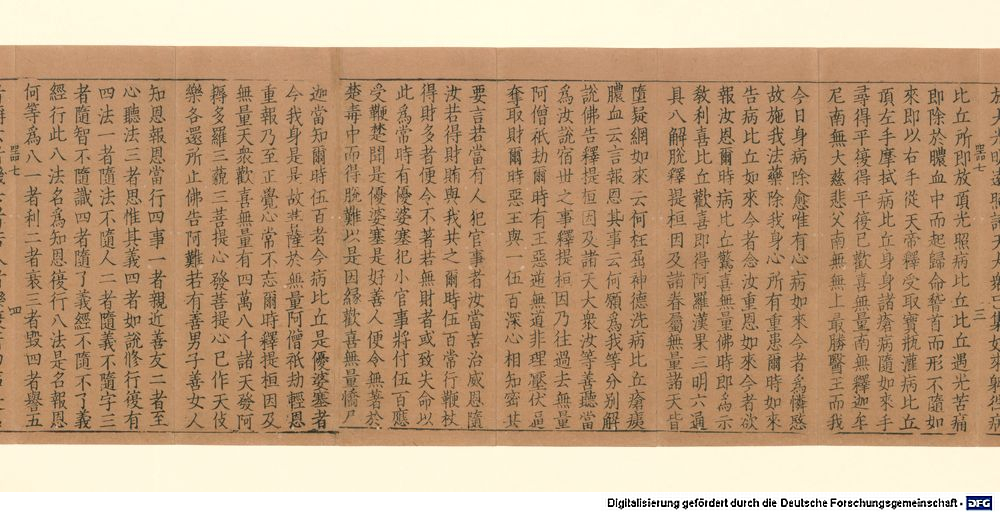 比丘所即放頂光照病比丘比丘遇光苦痛
即除於膿血中而起歸命稽首而形不隨如
來即以右手從天帝釋受取寶瓶灌病比丘
頂左手摩拭病比丘身身諸瘡病隨如來手
尋得平復得平復已歡喜無量南無釋迦牟
尼南無大慈悲父南無無上最勝醫王而我
今日身病除愈唯有心病如來今者為憐愍
故施我法藥除我身心所有重患爾時如來
告病比丘如來今者念汝重恩如來今者欲
報汝恩爾時病比丘驚喜無量佛時即為示
教利喜比丘歡喜即得阿羅漢果三明六通
具八解脫釋提桓因及諸眷屬無量諸天皆
墮疑網如來云何枉屈神德洗病比丘瘡痍
膿血云言報恩其事云何願為我等分別解
說佛告釋提桓因及諸天大衆汝等善聽當
為汝說宿世之事釋提桓因乃往過去無量
阿僧祇劫爾時有王惡逆無道非理壓伏逼
奪取財爾時惡王與一伍百深心相知密共
要言若當有人犯官事者汝當苦治威恩隨
汝若得財賄與我共之爾時伍百常行鞭杖
得財多者便令不著若無財者或致失命以
此為常時有優婆塞犯小官事將付伍百應
受鞭楚聞是優婆塞是好善人便令無著於
楚毒中而得脫難以是因緣歡喜無量憍尸
迦當知爾時伍百者今病比丘是優婆塞者
今我身是是故菩薩於無量阿僧祇劫輕恩
重報乃至正覺心常不忘爾時釋提桓因及
無量天衆歡喜無量有四萬八千諸天發阿
耨多羅三藐三菩提心發菩提心已作天伎
樂各還所止佛告阿難若有善男子善女人
知恩報恩當行四事一者親近善友二者至
心聽法三者思惟其義四者如說修行復有
四法一者隨法不隨人二者隨義不隨字三
者隨智不隨識四者隨了義經不隨不了義
經行此八法名為知恩復行八法是名報恩
何等為八一者利二者衰三者毀四者譽五
Digitalisierung gefördert durch die Deutsche Forschungsgemeinschaft - DFG